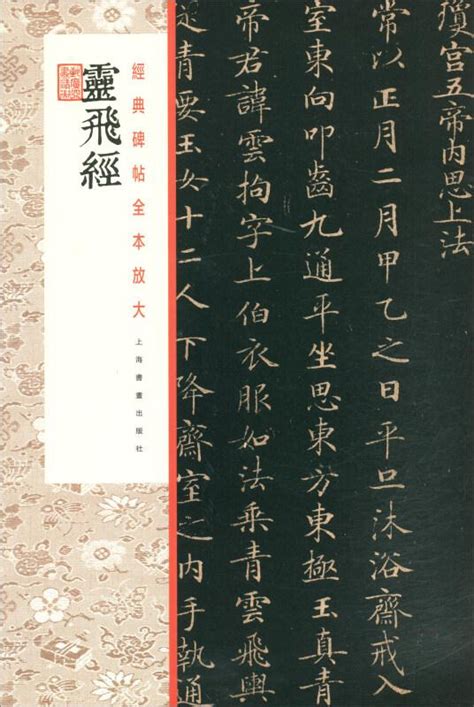 瓊宫五帝内思上法
常以正月二月甲乙之日平旦沐浴齋戒入
室東向叩齒九通平坐思東方東極玉真青
帝君諱雲拘字上伯衣服如法乘青雲飛輿
從青要玉女十二人下降齋室之内手執通
經典碑帖全本放大
上海書畫出版社
靈飛經